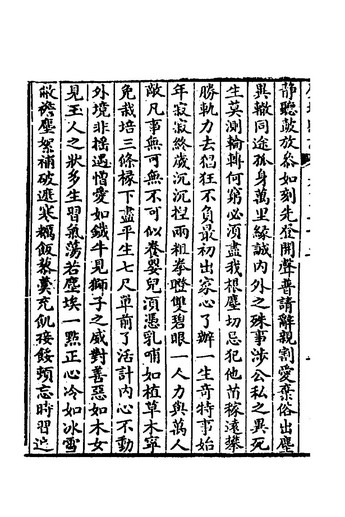 靜聽鼓放參如刻先登開聲普請辭親割愛棄俗出塵
異轍同途孤身萬里緣誠內外之殊事涉公私之異死
生莫測輪轉何窮必須盡我根塵切忌犯他苗稼遠攀
勝軌力去猖狂不負最初出家心了辦一生奇特事始
年寂寂終歲沉沉捏兩粗拳瞪雙碧眼一人力與萬人
敵凡事無可無不可似養嬰兒須憑乳哺如植草木寧
免栽培三條椽下盡平生七尺單前了活計內心不動
外境非搖遇憎愛如鐵牛見獅子之威對善惡如木女
見玉人之狀多生習氣蕩若塵埃一點正心冷如冰雪
敝襟塵絮補破遮寒糲飯藜羹充飢接餒頻忘時習